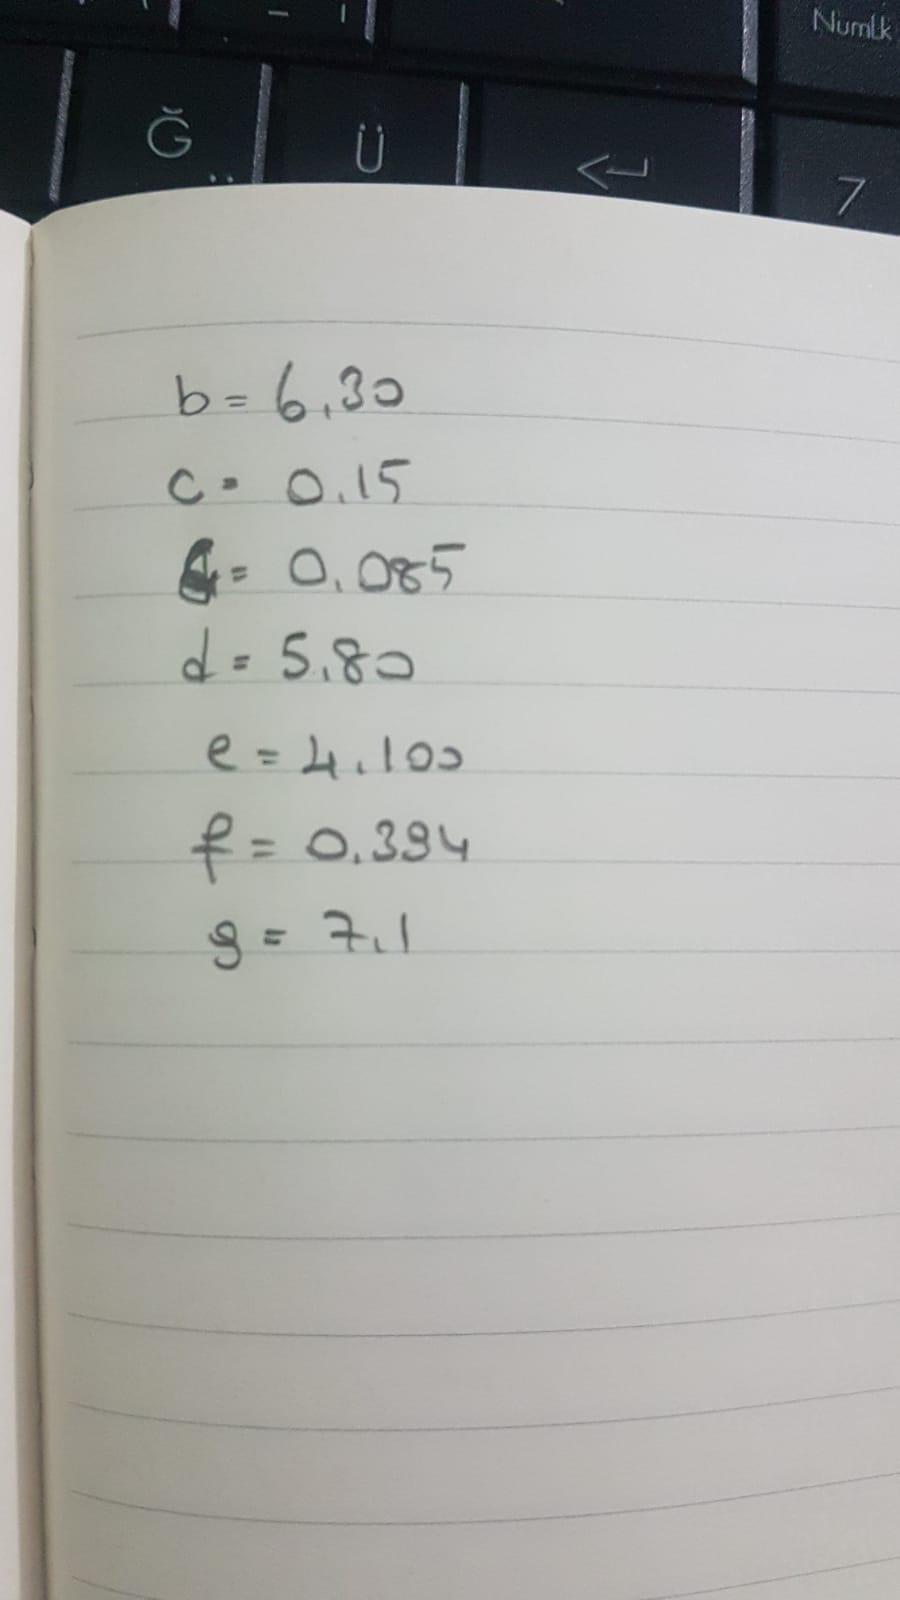 Numlk
Ğ Ü 7
b = 6,30
c = 0,15
= 0,085
d = 5,80
e = 4,100
f = 0,394
g = 7,1